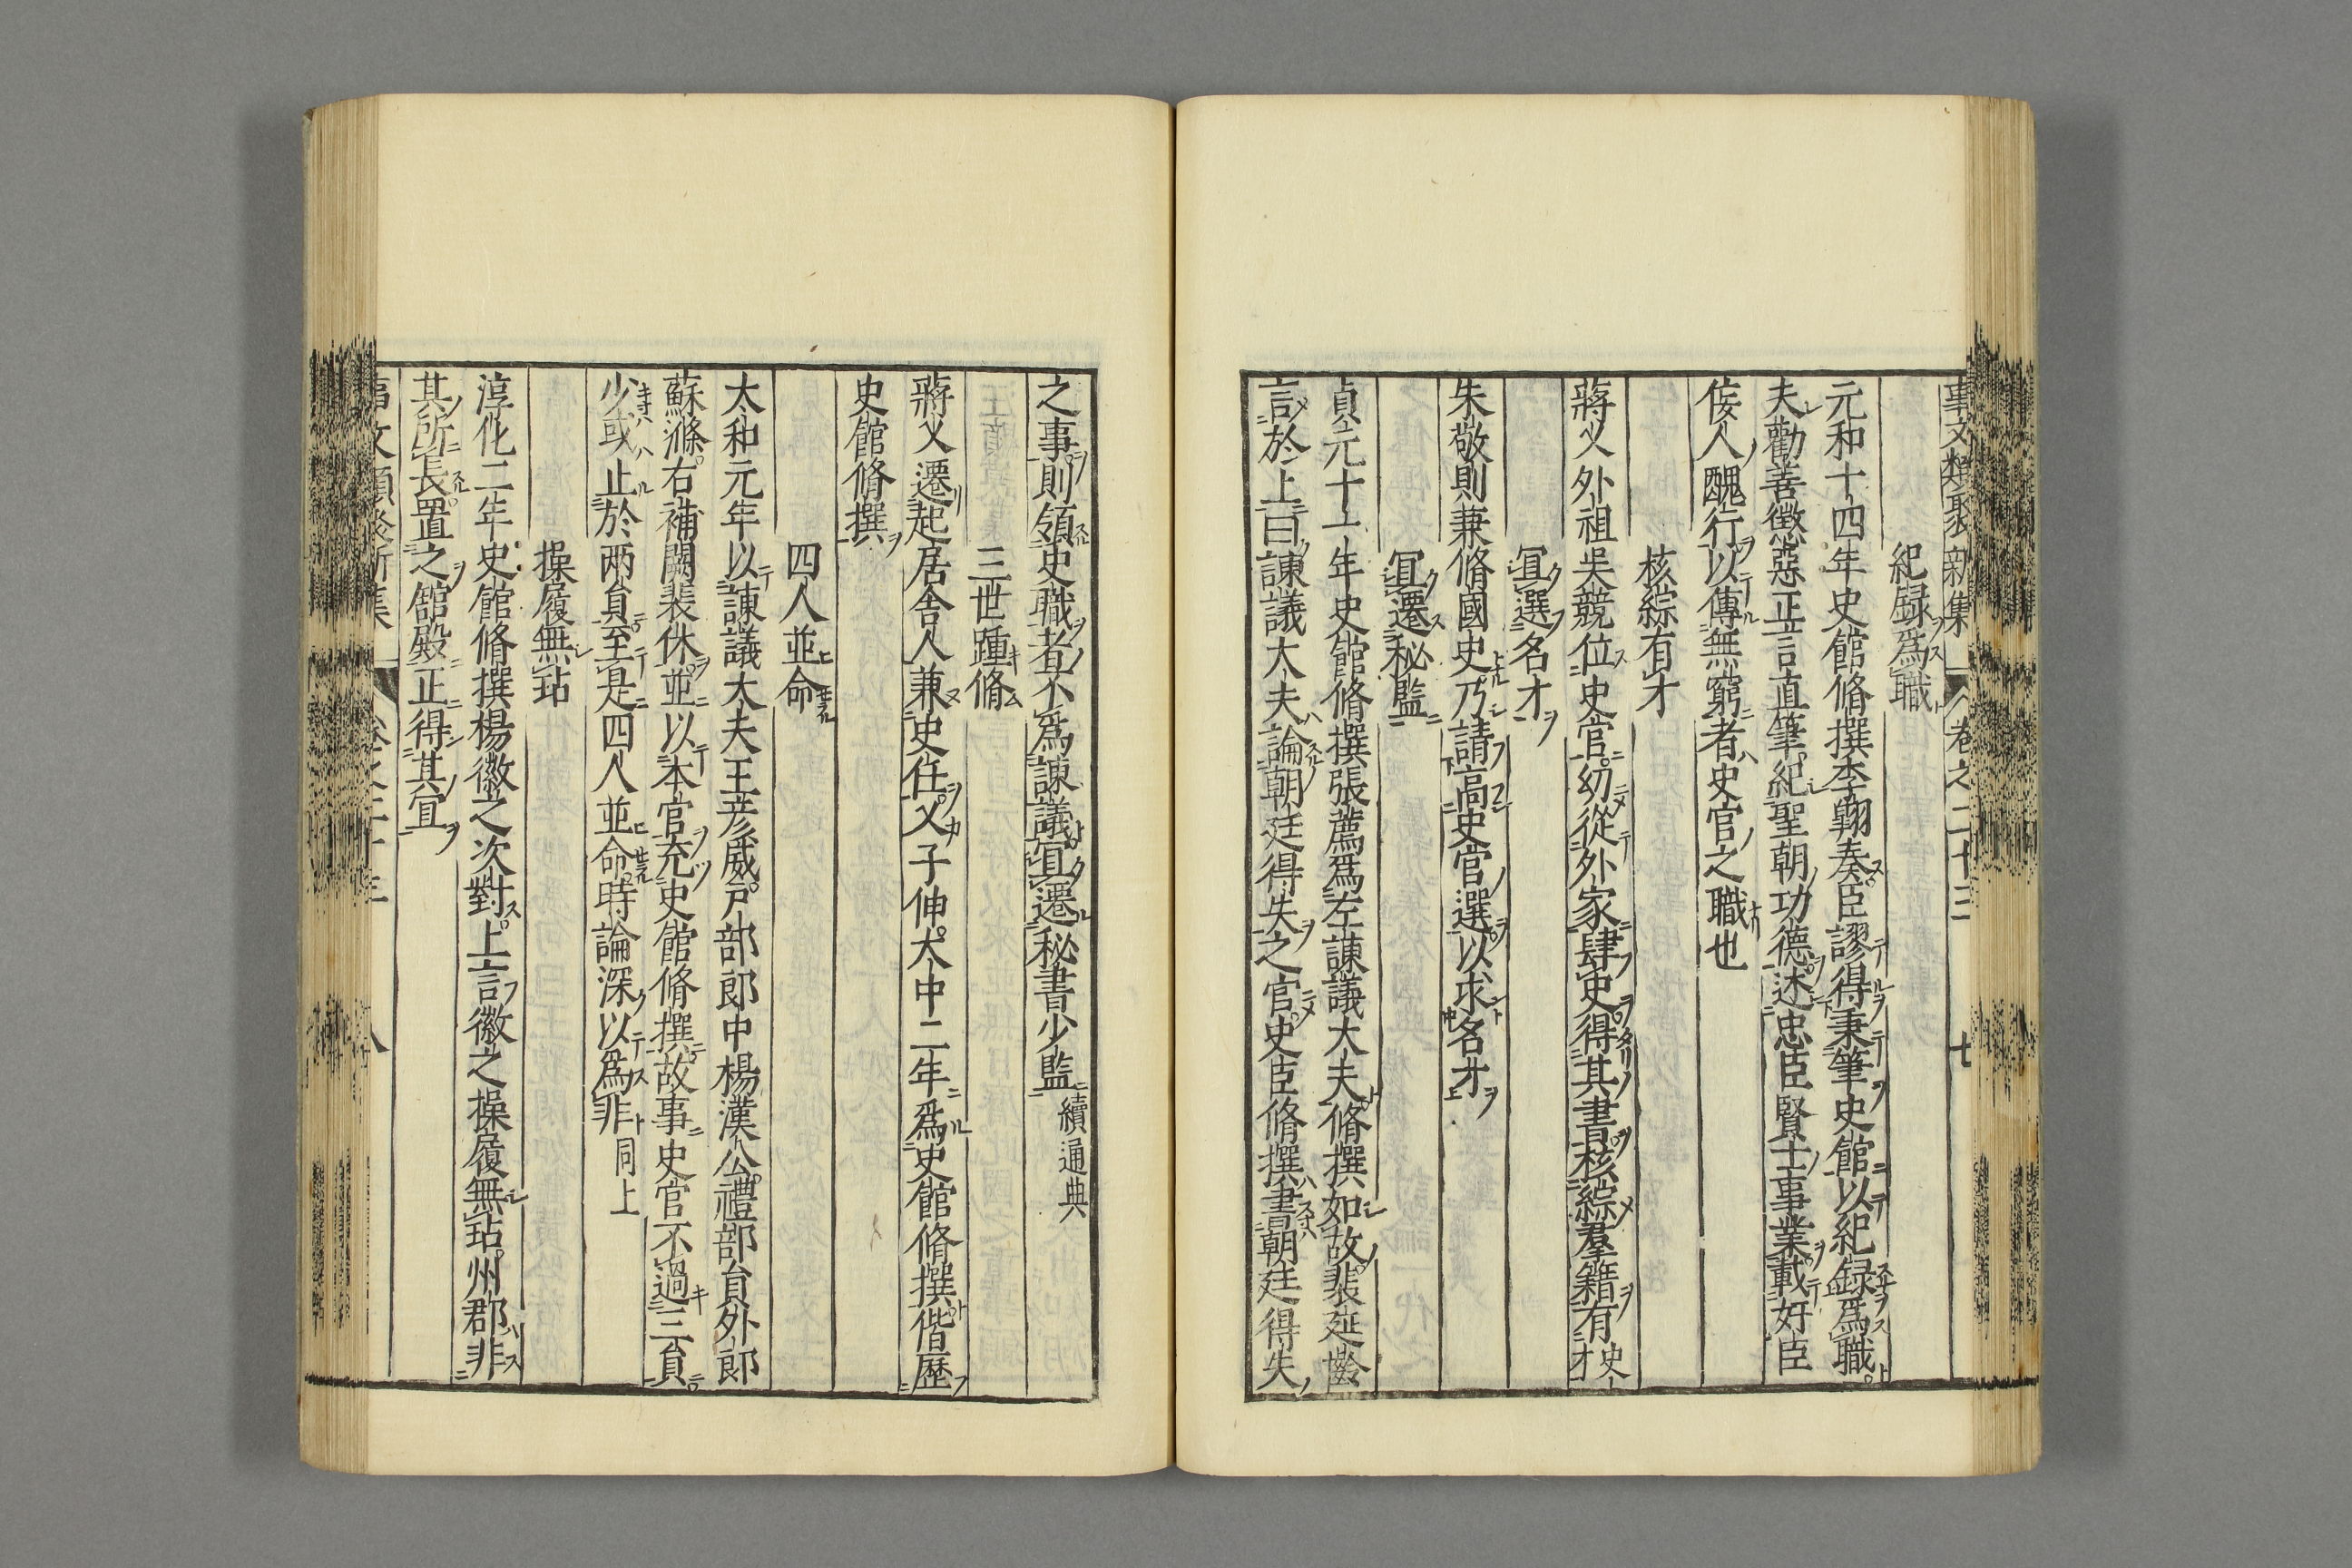 事文類聚新集 卷之二十三 七
紀録爲職
元和十四年史館脩撰李翺奏臣謬得秉筆史館以紀録爲職
夫勸善懲惡正言直筆紀聖朝功德述忠臣賢士事業載奸臣
佞人醜行以傳無窮者史官之職也
核綜有才
蔣乂外祖吳兢位史官幼從外家肆史得其書核綜羣籍有史才
宜選名才
朱敬則兼脩國史乃請高史官選以求名才
宜遷秘監
貞元十一年史館脩撰張薦爲左諫議大夫脩撰如故裴延齡
言於上曰諫議大夫論朝廷得失之官史臣脩撰書朝廷得失
之事則領史職者不爲諫議宜遷秘書少監續通典
三世踵脩
蔣乂遷起居舍人兼史任乂子伸大中二年爲史館脩撰偕歷
史館脩撰
四人並命
大和元年以諫議大夫王彦威戸部郎中楊漢公禮部負外郎
蘇滌右補闕裴休並以本官充史館脩撰故事史官不過三負
少或止於兩負至是四人並命時論深以爲非同上
操履無玷
淳化二年史館脩撰楊徽之次對上言徽之操履無玷州郡非
其所長置之舘殿正得其宜